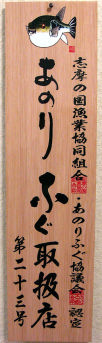 志摩の国漁業協同組合・あのりふぐ協議会 認定
あのりふぐ取扱店
第二十三号